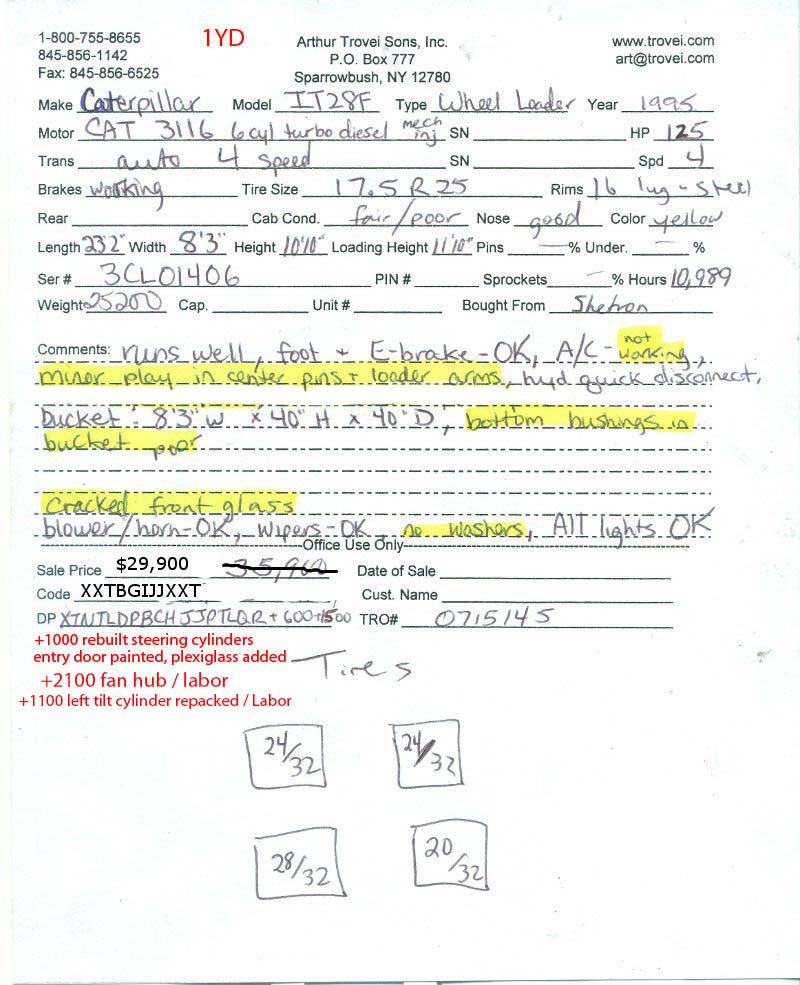 1-800-755-8655 1YD Arthur Trovei Sons, Inc. www.trovei.com
845-856-1142 P.O. Box 777 art@trovei.com
Fax: 845-856-6525 Sparrowbush, NY 12780
Make Caterpillar Model IT28F Type Wheel Loader Year 1995
Motor CAT 3116 6cyl turbo diesel mech inj SN HP 125
Trans auto 4 speed SN Spd 4
Brakes working Tire Size 17.5 R 25 Rims 16 lug - steel
Rear Cab Cond. fair/poor Nose good Color yellow
Length 23'2" Width 8'3" Height 10'10" Loading Height 11'10" Pins — % Under. — %
Ser # 3CL01406 PIN # Sprockets — % Hours 10,989
Weight 25200 Cap. Unit # Bought From Shetron
Comments: runs well, foot + E-brake - OK, A/C - not working,
minor play in center pins + loader arms, hyd quick disconnect,
bucket: 8'3" W x 40" H x 40" D, bottom bushings in
bucket poor
Cracked front glass
blower/horn-OK, wipers-OK, no washers, All lights OK
Office Use Only
Sale Price $29,900 35,900 Date of Sale
Code XXTBGIJJXXT Cust. Name
DP XTNTLDPBCHJJPTLQR + 600 + 1500 TRO# 0715145
+1000 rebuilt steering cylinders
entry door painted, plexiglass added
Tires
+2100 fan hub / labor
+1100 left tilt cylinder repacked / Labor
24/32 24/32
28/32 20/32